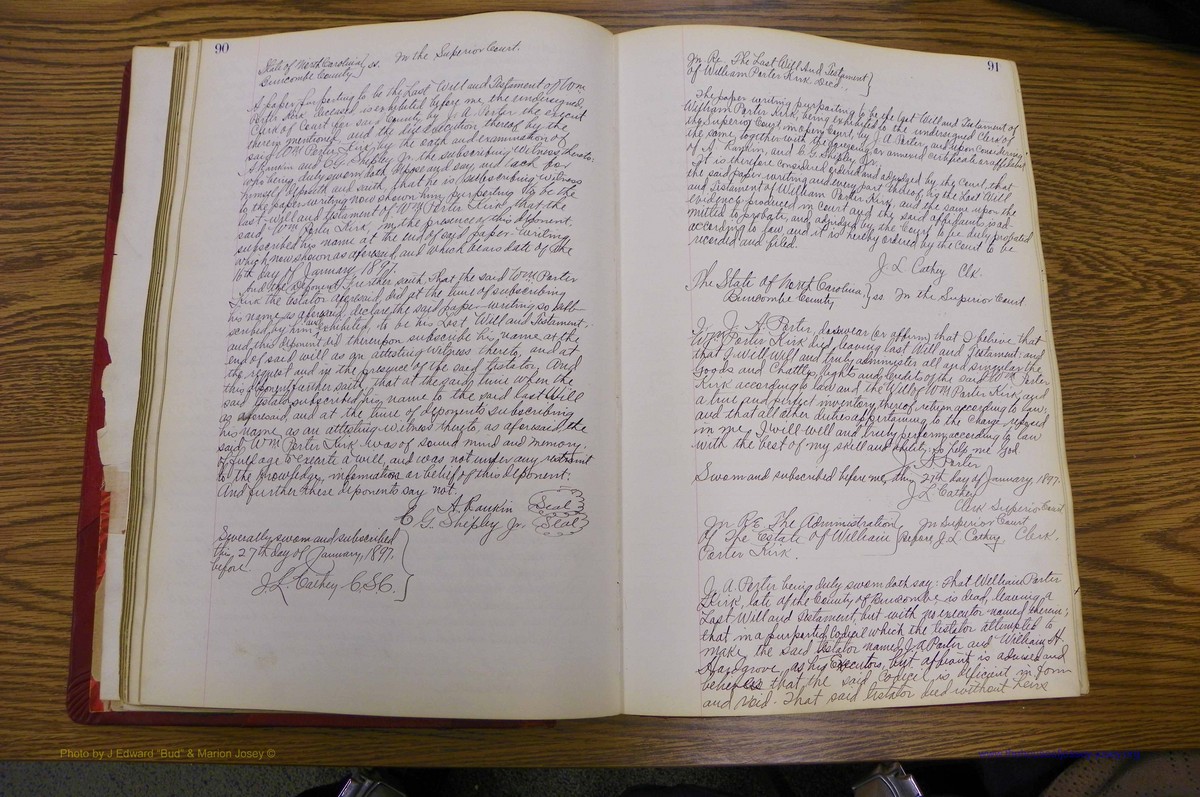 90
State of North Carolina } ss. In the Superior Court.
Buncombe County
A paper purporting to be the Last Will and Testament of Wm
Porter Kirk, deceased is exhibited before me, the undersigned,
Clerk of Court for said County by J. A. Porter the execut
therein mentioned, and the due execution thereof by the
said Wm Porter Kirk by the oath and examination of
A. Rankin and C. G. Shipley Jr. the subscribing witness thereto.
who being duly sworn doth depose and say, and each for
himself deposeth and saith, that he is a subscribing witness
to the paper writing now shown him, purporting to be the
last will and testament of Wm Porter Kirk, that the
said, Wm Porter Kirk, in the presence of this deponent
subscribed his name at the end of said paper-writing
which now shown as aforesaid, and which bears date of the
16th day of January, 1897.
And the deponent further saith, That the said Wm Porter
Kirk the testator aforesaid, did at the time of subscribing
his name as aforesaid, declare the said paper writing so sub-
scribed by him and exhibited, to be his Last Will and Testament,
and this deponent did thereupon subscribe his name at the
end of said will as an attesting witness thereto, and at
the request and in the presence of the said testator. And
this deponent further saith, that at the said time when the
said testator subscribed his name to the said last Will
as aforesaid, and at the time of deponents subscribing
his name as an attesting witness thereto, as aforesaid, the
said Wm Porter Kirk was of sound mind and memory,
of full age to execute a will, and was not under any restraint
to the knowledge, information or belief of this deponent:
And further these deponents say not.
A. Rankin (Seal)
C. G. Shipley Jr. (Seal)
Severally sworn and subscribed
this 27th day of January, 1897.
before
J. L. Cathey C.S.C.
91
In Re The Last Will And Testament
of William Porter Kirk Decd.
The paper writing purporting to be the last Will and Testament of
William Porter Kirk, being exhibited to the undersigned Clerk of
the Superior Court, in open Court, by J. A. Porter, and upon considering
the same, together with the foregoing or annexed certificate or affidavit
of A. Rankin, and C. G. Shipley Jr.
It is therefore considered ordered and adjudged by the Court, that
the said paper writing and every part thereof is the Last Will
and Testament of William Porter Kirk, and the same upon the
evidence produced in court and the said affidavits is ad-
mitted to probate, and adjudged by the Court to be duly probated
according to law and it is hereby ordered by the Court to be
recorded and filed.
J. L. Cathey Clk.
The State of North Carolina, } ss In the Superior Court
Buncombe County
I, J. A. Porter, do swear (or affirm) that I believe that
Wm Porter Kirk died, leaving last Will and Testament: and
that I will well and truly administer all and singular the
Goods and Chattles, rights and credits of the said Wm Porter
Kirk according to law and the Will of Wm Porter Kirk, and
a true and perfect inventory thereof return according to law:
and that all other duties appertaining to the charge reposed
in me, I will well and truly perform, according to law
with the best of my skill and ability, so help me God
J. A. Porter
Sworn and subscribed before me, this 27th day of January, 1897.
J. L. Cathey
Clerk Superior Court
In RE The Administration In Superior Court
Of The Estate of William Before J. L. Cathey, Clerk.
Porter Kirk.
J. A. Porter being duly sworn doth say: That William Porter
Kirk, late of the County of Buncombe is dead, leaving a
Last Will and Testament, but with no executor named therein;
that in a purported Codicil which the testator attempted to
make the said testator named J. A. Porter and William H.
Hargrove, as his Executors, but affiant is advised and
believes that the said Codicil is deficient in form
and void. That said testator died without heirs
Photo by J Edward "Bud" & Marion Josey ©